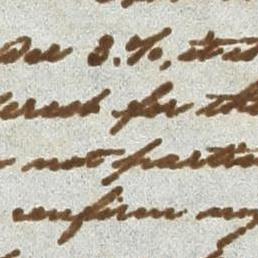 Dec 3. %, stat
ferred for the
not partic
confirm my